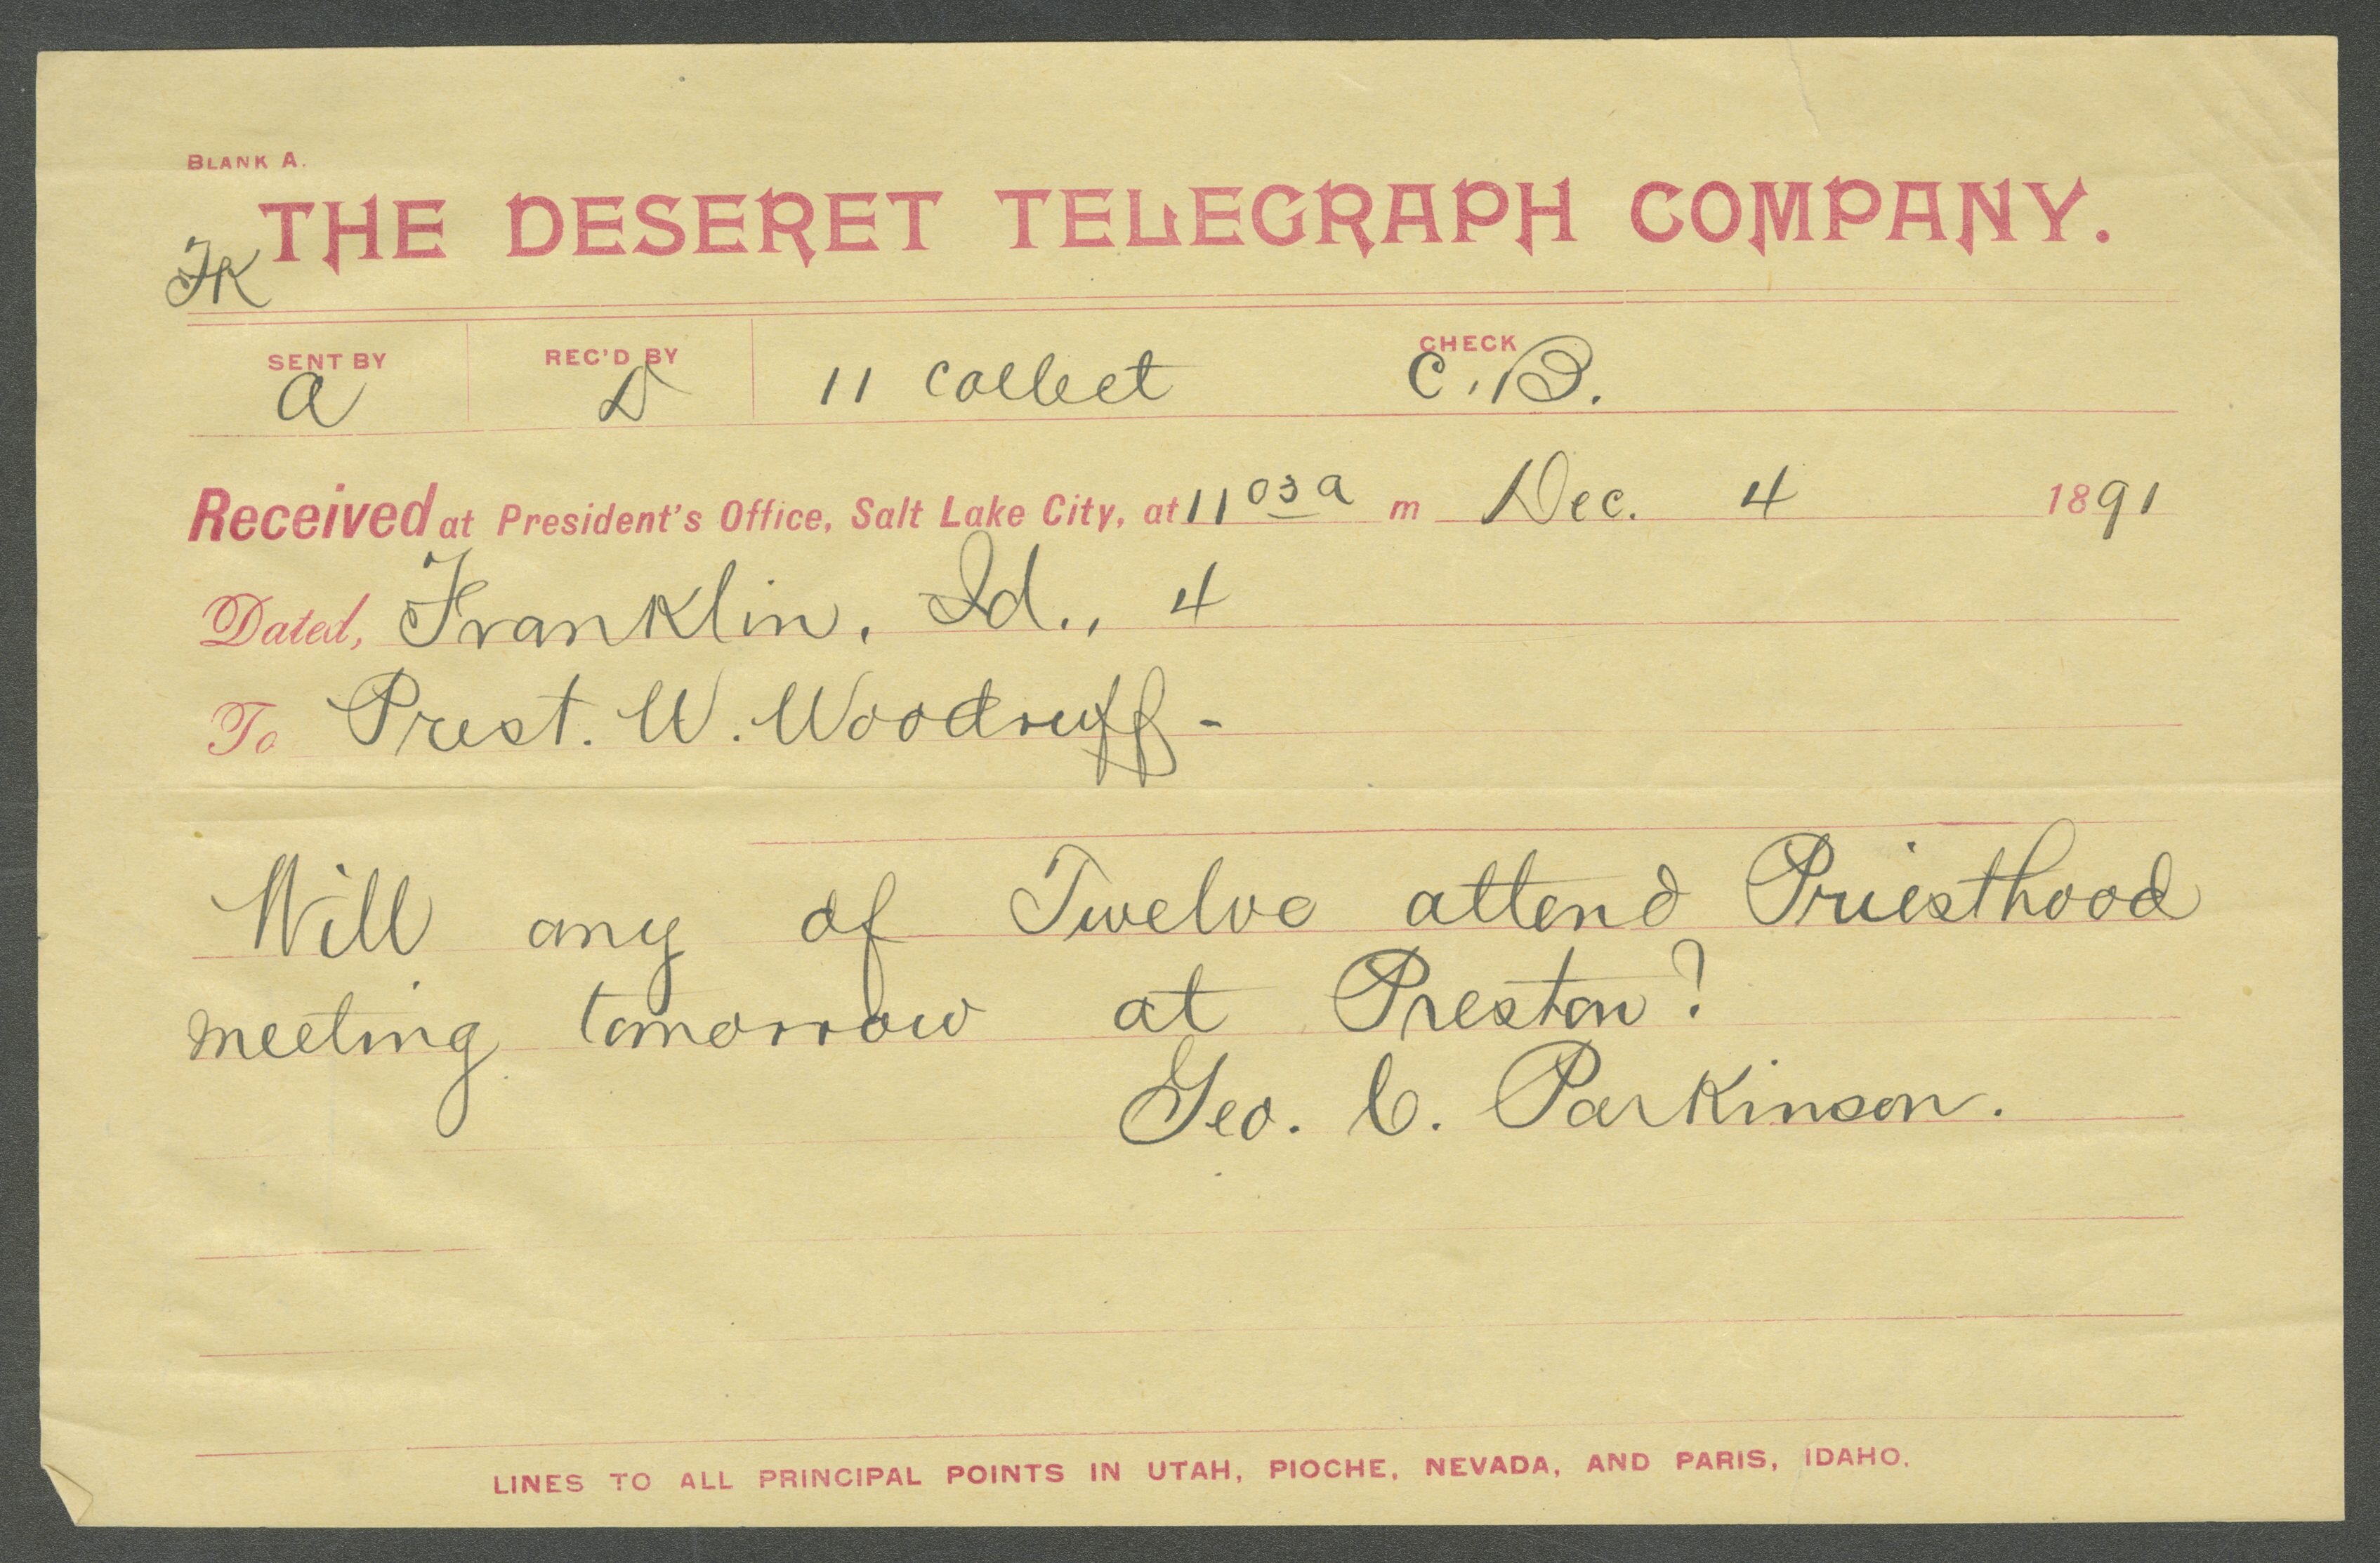 BLANK A.
THE DESERET TELEGRAPH COMPANY.
FK
SENT BY REC'D BY CHECK
a D 11 collect C.B.
Received at President's Office, Salt Lake City, at 11 03 a m Dec. 4 1891
Dated, Franklin, Id., 4
To Prest. W. Woodruff-
Will any of Twelve attend Priesthood
meeting tomorrow at Preston?
Geo. C. Parkinson.
LINES TO ALL PRINCIPAL POINTS IN UTAH, PIOCHE, NEVADA, AND PARIS, IDAHO.